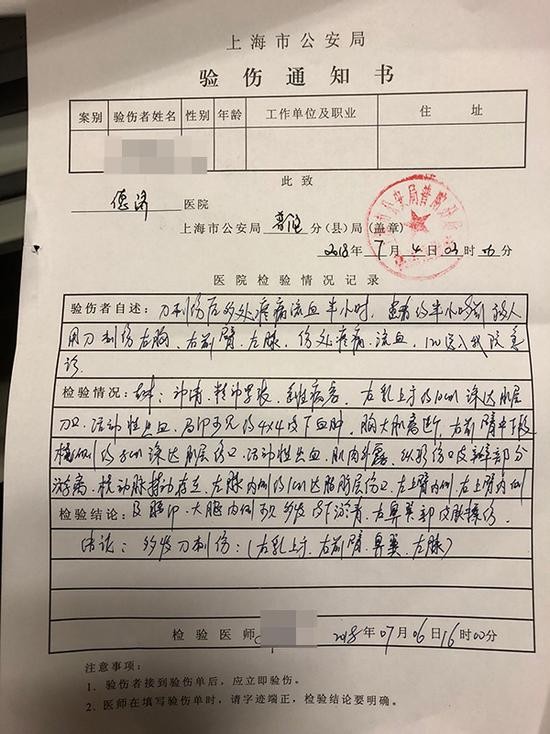 上海市公安局
验伤通知书
案别 验伤者姓名 性别 年龄 工作单位及职业 住址
此致
德济 医院
上海市公安局 普陀 分(县)局(盖章)
2018年7月4日03时 分
医院检验情况记录
验伤者自述：刀刺伤后多处疼痛流血半小时，患者约半小时前被人
用刀刺伤左胸、右前臂、左膝，伤处疼痛、流血，120送入我院急
诊
检验情况： 神清，精神 ，急性病容，左乳上方约10cm深达肌层
刀口，活动性出血，局部可见约4×4皮下血肿，胸大肌离断，右前臂中下段
约5cm深达肌层伤口，活动性出血，肌肉外露，纵形伤口皮瓣部分
游离，桡动脉搏动存在，左膝内侧约1cm达脂肪层伤口，左上臂内侧
检验结论：及 大腿内侧可见多处皮下淤青，左鼻翼部皮肤擦伤。
结论：多发刀刺伤：(左乳上方、右前臂、鼻翼、左膝)
检验医师 2018年07月06日16时00分
注意事项：
1、验伤者接到验伤单后，应立即验伤。
2、医师在填写验伤单时，请字迹端正，检验结论要明确。